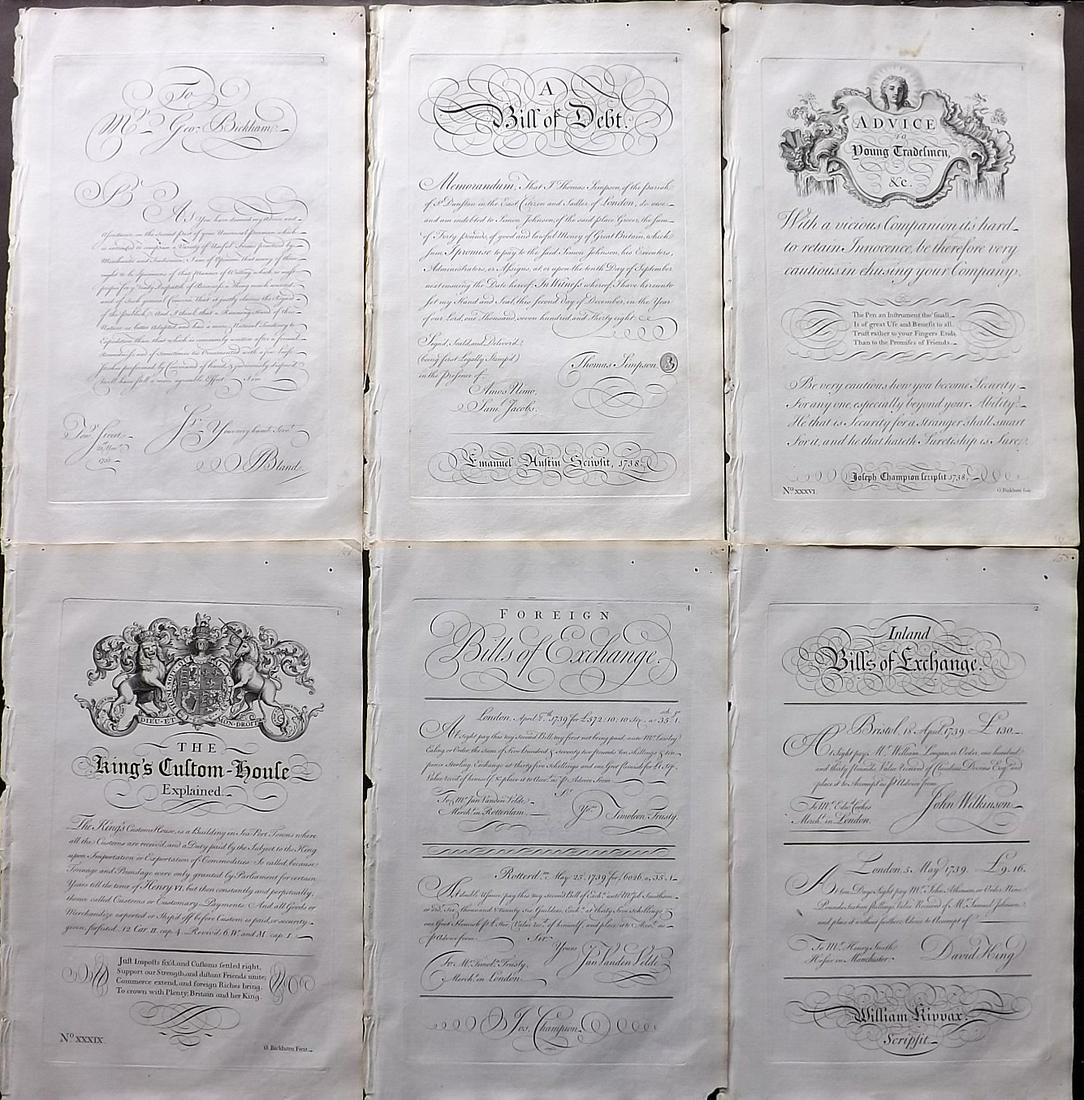 3
To
Mr. Geo: Bickham.
Sr.
As You have desired my Advice, and
Assistance in the second part of your Universal Penman which
is intended to comprise a Variety of Useful Forms practised by
Merchants and Tradesmen, I am of Opinion that many of them
ought to be Specimens of that Manner of Writing which is most
proper for y.e ready Dispatch of Business
of the Publick; And I think that a Running Hand
Nature
Expedition than
will have full a more agreable Effect. I am
Sr. Your very humb. Serv.t
J Bland.
4
A
Bill of Debt.
Memorandum, That I Thomas Simpson, of the Parish
of St. Dunstan in the East, Citizen and Sadler of London, do owe
and am indebted to Simon Johnson, of the said place Grocer, the Sum
of Forty pounds, of good and lawful Money of Great Britain, which
Sum I promise to pay to the said Simon Johnson, his Executors,
Administrators, or Assigns, at, or upon the tenth Day of September
next ensuing the Date hereof. In Witness whereof I have hereunto
set my Hand and Seal, this second day of December, in the Year
of our Lord, one Thousand, seven hundred, and thirty eight.
Sign'd, Seal'd, and Deliver'd,
(being first Legally Stamp'd)
in the Presence of
Thomas Simpson.
Amos Nemo,
Sam.l Jacobs.
Emanuel Austin Scripsit, 1738.
1
ADVICE
to
Young Tradesmen,
&c.
With a vicious Companion it's hard
to retain Innocence, be therefore very
cautious in chusing your Company.
The Pen an Instrument tho' small,
Is of great Use and Benefit to all.
Trust rather to your Fingers Ends,
Than to the Promises of Friends.
Be very cautious how you become Security
For any one, especially beyond your Ability.
He that is Security for a Stranger shall smart
For it, and he that hateth Suretiship is Sure.
Joseph Champion scripsit 1738.
No. XXXVI
G. Bickham fec.
1
DIEU·ET MON·DROIT
THE
King's Custom-House
Explained.
The King's Custom House, is a Building in Sea Port Towns where
all the Customs are receiv'd, and a Duty paid by the Subject to the King
upon Importation or Exportation of Commodities. So called, because
Tonnage and Poundage were only granted by Parliament for certain
Years till the time of Henry VI. but then constantly and perpetually,
thence called Customs or Customary Payments. And all Goods or
Merchandize exported or Ship'd off before Custom is paid, or security
given, forfeited. 12. Car. II. cap. 4. Reviv'd 6. W. and M. cap. 1.
Just Imposts fix'd, and Customs settled right,
Support our Strength, and distant Friends unite;
Commerce extend, and foreign Riches bring,
To crown with Plenty, Britain and her King.
No. XXXIX
G. Bickham Fecit.
4
FOREIGN
Bills of Exchange.
London, April 8th. 1739 for £572:10:10 Ster. a 35s. 1.
At sight pay this my second Bill, my first not being paid, unto Mr. Lawley
Eakng or Order, the sum of Five hundred & seventy two Pounds Ten Shillings & ten
pence Sterling, Exchange at thirty five Schellings and one Groot Flemish for £ Ster.
Value receiv'd of himself, & place it to Acco. as Pr. Advice from
Sr.
To Mr. Jan Vanden Velde
Merch.t in Rotterdam.
Yrs. Timoleon Trusty.
Rotterd.m May 25. 1739 for f 6026. a 35.1
At double Usance pay this my second Bill of Exch.
or Ord. Six thousand & twenty six Guilders, Exch. at thirty five Schellings
one Groot Flemish Pr. £ Ster. Value rec. of himself, and place it to Acco. as
Pr. Advice from
Sr.
Yours
Jan Vanden Velde.
To Mr. Timol. Trusty
Merch.t in London.
Jos. Champion.
2
Inland
Bills of Exchange.
Bristol, 18 April, 1739. £130.
At Sight pay Mr. William Langan, or Order, one hundred
and thirty Pounds, Value receiv'd of Christian Divinus Esqr. and
place it to Account as Pr. Advice from
To Mr. Edw.d Cookes
Merch.t in London.
John Wilkinson.
London, 5. May 1739. £9.16.
At ten Days Sight pay Mr. John Atkinson, or Order Nine
Pounds sixteen shillings, Value Receiv'd of Mr. Samuel Johnson,
and place it without further Advice to Account of
To Mr. Henry Smith
Hosier in Manchester.
David King
William Kippax,
Scripsit.